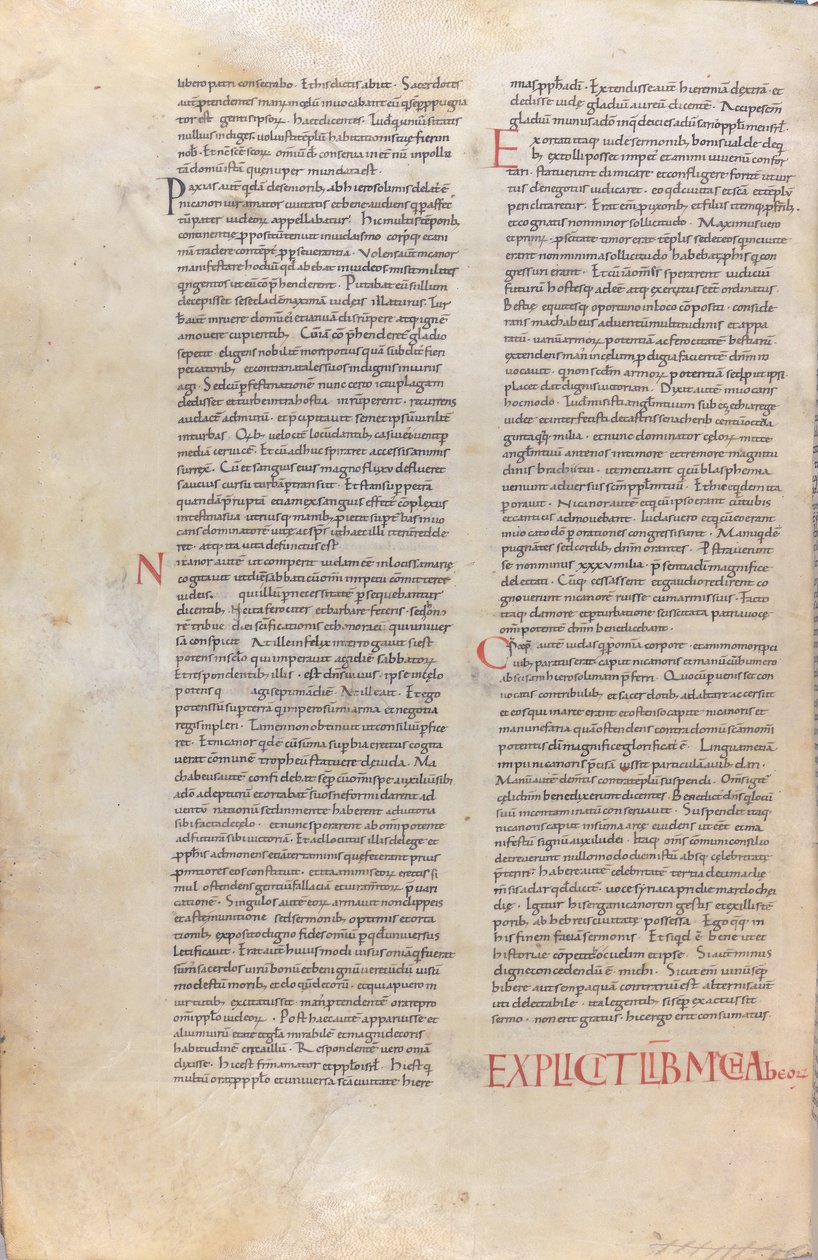 libero patri consecrabo. Et his dictis abiit. Sacerdotes
aut̄ p̄tendentes manꝰ in cęlū invocabant eū q̄ sēp ꝓpugna
tor est gentis ipsoꝝ. haec dicentes. Tu dn̄e uniūsitatis
nullius indiges. voluisti tēplū habitationis tuę fieri in
nob̄. Et nc̄ sc̄e sc̄oꝝ omīū dn̄e conserva in et̄nū inpollu
tā domū istā quę nuper mundata est.
Raxias aut̄ q̄dā de seniorib; ab hierosolimis delat̄ ē
nicanori vir amator civitatis et bene audiens q ꝓ affec
tu pater iudeoꝝ appellabatur. Hic multis tēporib;
continentię ꝓpositū tenuit in iudaismo corpꝰq; et ani
mā tradere content̄ ꝓ ꝑseverantia. Volens aut̄ nicanor
manifestare hodiū qd̄ habebat in iudeos. misit milites
qngentos ut eū cōp̄henderent. Putabat eū si illum
decepisset se cladē maximā iudeis illaturus. Tur
b̄ aut̄ inruere domū eiꝰ et ianuā disrūpere atq; ignē
amovere cupientib; Cū iā cōp̄henderet̄ gladio
se petiit. eligens nobilit̄ mori potius quā subdit̄ fieri
peccatorib; et contra natales suos indignis iniuriis
agi. Sed cū ꝑ festinationē nunc certo ictu plagam
dedisset et turbę intra hostia inrūperent. recurrens
audact̄ ad murū. et p̄cipitavit semet ipsū virilit̄
in turbas. Qꝰb; velocit̄ locū dantib; casui eiꝰ venit ꝑ
mediā cervicē. Et cū adhuc spiraret accensis animis
surrex̄. Cū et sanguis eius magno fluxu deflueret
saucius cursu turbā ꝑtransiit. Et stans sup̄ petrā
quandā p̄ruptā et iam exsanguis effect̄ cōplexus
intestina sua utriusq; manib; ꝓiecit sup̄ turbas invo
cans dominatorē vitę ac sp̄s ut haec illi iterū redde
ret. atq; ita vita defunctus est.
Nicanor autē ut cōperit iudam eē in locis samarię
cogitavit ut die sabbati cū omī impetu cōmitteret
iudeis. qui illū ꝑ necessitatē ꝑsequebantur
dicentib; Ne ita ferocit̄ et barbarę feceris. sed hon
rē tribue diei sc̄ificationis et honora eū qui univer
sa conspicit. At ille infelix interrogavit si est
potens in cęlo qui imperavit agi diē sabbatoꝝ.
Et respondentib; illis. est dn̄s vivus. ipse in cęlo
potens q agi septimā diē. At ille ait. Et ego
potens sū sup̄ terrā q impero sumi arma et negotia
regis impleri. Tamen non obtinuit ut consiliū ꝑfice
ret. Et nicanor qdē cū sūma sup̄bia erectus cogita
verat cōmune tropheū statuere de iuda. Ma
chabeus autē confidebat sēp cū omī spe auxiliū sibi
a dō adepturū et ortabat̄ suos ne formidarent ad
ventū nationū sed in mente haberent adiutoria
sibi facta de cęlo. et nunc sperarent ab omīpotente
adfuturā sibi victoriā. Et adlocutus illis de lege et
ꝓph̄is admonens etiā certaminis quę fecerant prius
ꝓmtiores eos constituit. et ita animis eoꝝ erectis si
mul ostendens gentiū fallaciā et iuram̄toꝝ p̄vari
cationē. Singulos autē eoꝝ armavit non clippei
et astę munitione sed sermonib; optimis et orta
tionib; exposito digno fide somniū ꝑ qd̄ universus
lętificavit. Erat aut̄ huius modi visus oniā q fuerat
sum̄ sacerdos virū bonū et benignū verecundū visū
modestū morib; et eloqō decorū. et qui a puero in
virtutib; exercitatus sit. manꝰ p̄tendentē orare pro
om̄i ppl̄o iudeoꝝ. Post haec autē apparuisse et
aliū virū ętate et glā mirabilē et magni decoris
habitudinē circa illū. Respondentē vero oniā
dixisse. hic est fr̄m amator et ppl̄i isrl̄. Hic est q
multū orat ꝓ ppl̄o et universa sc̄a civitate hiere
mias ꝓph̄a dī. Extendisse aut̄ hieremiā dextrā. et
dedisse iudę gladiū aureū dicentē. Accipe sc̄m
gladiū munus a dō in q deicies adversarios ppl̄i mei isrl̄.
Exortati itaq; iudę sermonib; bonis valde de qb;
extolli posset impet̄ et animi iuvenū confor
tari. statuerunt dimicare et confligere fortit̄ ut vir
tus de negotiis iudicaret. eo qd̄ civitas et sc̄ā et tēplū
periclitaretur. Erat eī ꝓ uxorib; et filiis itēq; ꝓ fr̄ib;
et cognatis non minor sollicitudo. Maximus vero
et primꝰ ꝓ sc̄itate timor erat tēpli. sed et eos q in civitate
erant non minima sollicitudo habebat ꝓ his q con
gressuri erant. Et cū iā om̄s sperarent iudiciū
futurū hostesq; adeēt atq; exercitus eēt ordinatus.
Bestię equitesq; oportuno in loco cōpositi. conside
rans machabeus adventū multitudinis et appa
ratū variū armoꝝ potentiā ac ferocitatē bestiarū.
extendens manꝰ in cęlum ꝓdigia facientē dn̄m in
vocavit. q non scd̄m armoꝝ potentiā sed ꝓut ipsi
placet dat dignis victoriam. Dixit autē invocans
hoc modo. Tu dn̄e misisti angl̄m tuum sub ezechia rege
iudę et interfecisti de castris senacherib centū octoa
ginta qnq; milia. et nunc dominator cęloꝝ mitte
angl̄m tuū ante nos in timore et tremore magnitu
dinis brachii tui. ut metuant q cū blasphemia
veniunt adversus sc̄m ppl̄m tuū. Et hic eqdem ita
ꝑoravit. Nicanor autē et q cū ipso erant cū tubis
et canticis admovebant. Iudas vero et q cū eo erant
invocato dō ꝑ orationes congressi sunt. Manu qdē
pugnantes sed cordib; dn̄m orantes. Prstraverunt
se non minus xxxv milia. p̄sentia dī magnifice
delectati. Cūq; cessassent et gaudio redirent co
gnoverunt nicanorē ruisse cū armis suis. Facto
itaq; clamore et ꝑturbatione suscitata patria voce
om̄ipotentē dn̄m benedicebant.
Precep̄ autē iudas q ꝑ omīa corpore et animo mori ꝓ ci
vib; paratus erat caput nicanoris et manū cū humero
abscisam hierosolimam ꝑferri. Quo cū ꝑvenisset con
vocatis contribulib; et sacerdotib; ad altare accersiit
et eos qui in arce erant. et ostenso capite nicanoris et
manu nefaria quā ostendens contra domū sc̄am omī
potentis dī magnifice gloriat̄ ē. Linguam etiam
impii nicanoris p̄cisā iussit particulatī avib; dari.
Manū autē dem̄tis contra tēplū suspendi. Om̄s igit̄
cęli dn̄m benedixerunt dicentes. Benedict̄ dn̄s q locū
suū incontaminatū conservavit. Suspendit itaq;
nicanoris caput in sūma arce evidens ut eēt et ma
nifestū signū auxilii dei. Itaq; om̄s cōmuni consilio
decreverunt nullo modo diem istū absq; celebritate
p̄terire. habere autē celebritatē tertia decima die
m̄sis adar qd̄ dicit̄ voce syriaca pridie mardochei
dię. Igitur his erga nicanorem gestis et ex illis tē
porib; ab hebreis civitate possessa. Ego q̄q; in
his finem faciā sermonis. Et siqd̄ ē bene ut et
historię cōpetit hoc velim et ipse. Si aut minus
digne concedendū ē michi. Sicut enī vinū sēp
bibere aut sēp aquā contrariū est. alternis aut̄
uti delectabile. ita legentib; si sēp exactus sit
sermo non erit gratus. hic ergo erit consumatus.
EXPLICIT LIB̄ MACHAbeoꝝ